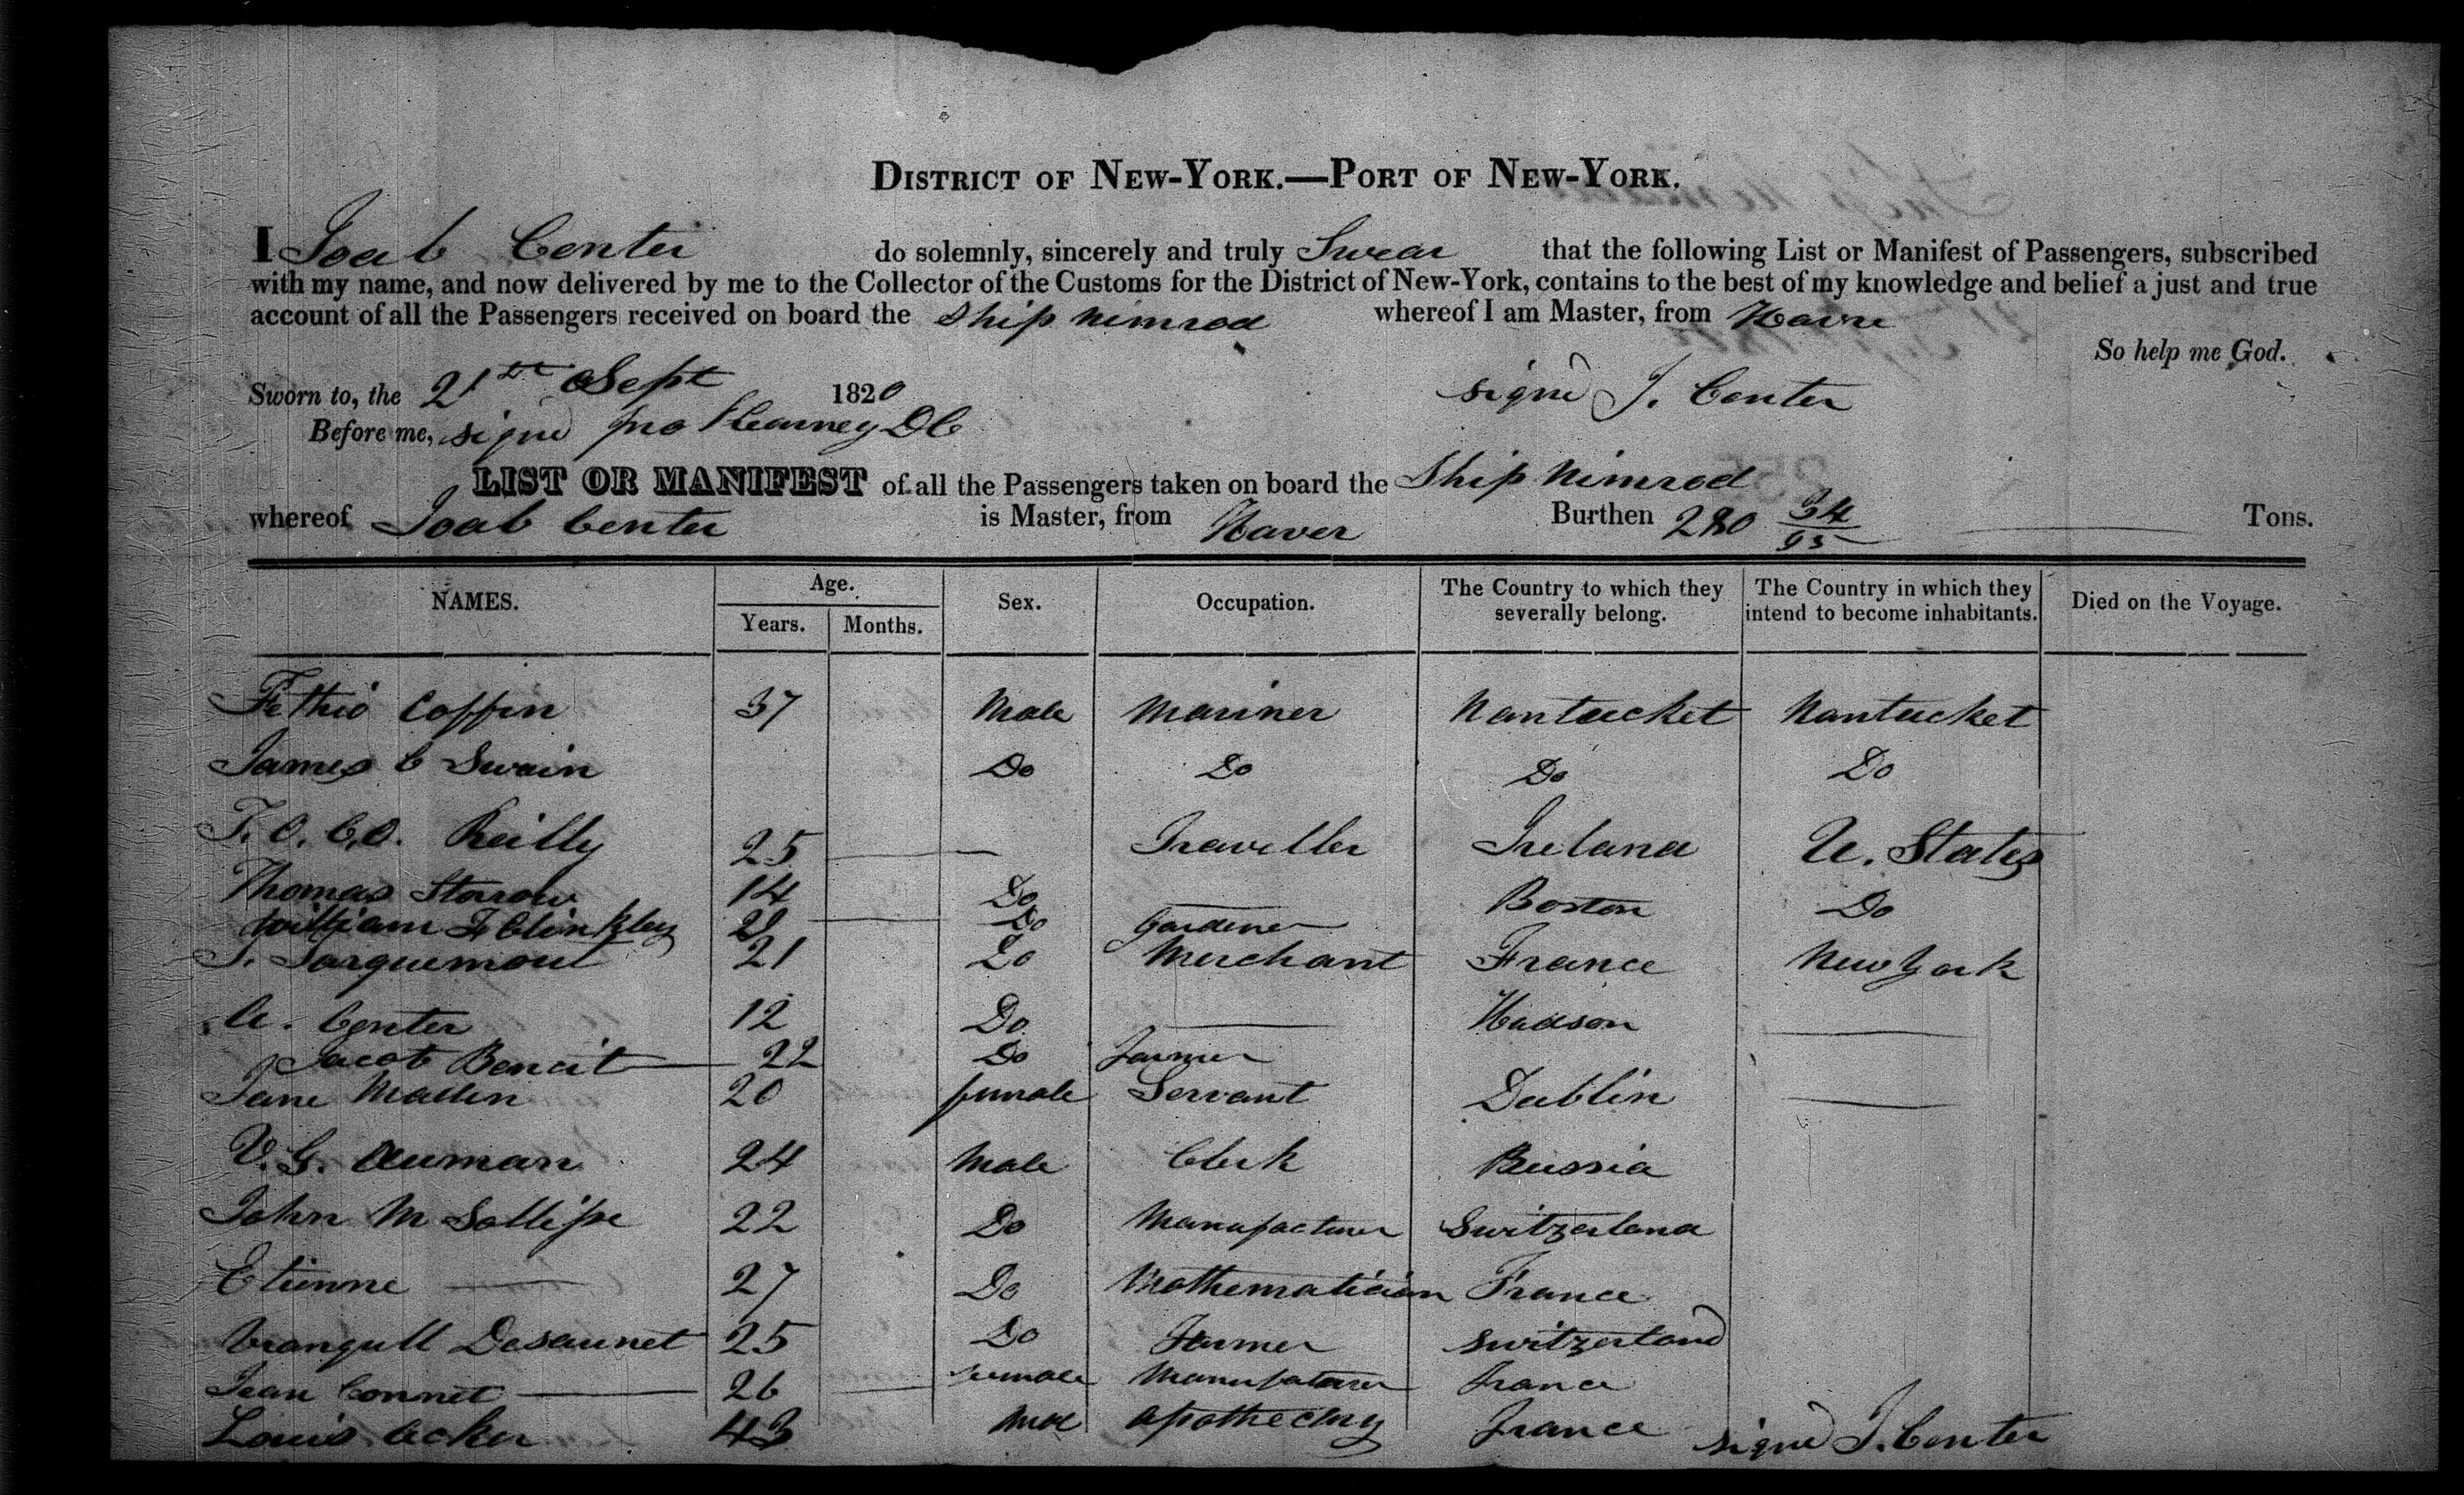 DISTRICT OF NEW-YORK.—PORT OF NEW-YORK.
I Joab Center do solemnly, sincerely and truly Swear that the following List or Manifest of Passengers, subscribed
with my name, and now delivered by me to the Collector of the Customs for the District of New-York, contains to the best of my knowledge and belief a just and true
account of all the Passengers received on board the Ship Nimrod whereof I am Master, from Havre
So help me God.
Sworn to, the 21st Sept 1820 signd J. Center
Before me, signd Jno Kearney DC
LIST OR MANIFEST of all the Passengers taken on board the Ship Nimrod
whereof Joab Center is Master, from Haver Burthen 280 34/95 Tons.
NAMES. Age. Sex. Occupation. The Country to which they severally belong. The Country in which they intend to become inhabitants. Died on the Voyage.
Years. Months.
Coffin 37 Male Mariner Nantucket Nantucket
James C Swain Do Do Do Do
T. O. C. O. Reilly 25 Traveller Ireland U. States
Thomas Storrow 14 Do Boston Do
William F Clinkley Do Gardener
21 Do Merchant France New York
A. Center 12 Do Hudson
Jacob Benoit 22 Do Farmer
Jane Mallin 20 female Servant Dublin
V. G. Auman 24 Male Clerk Russia
John M 22 Do Manufacturer Switzerland
Etienne 27 Do Mathematician France
Desaunet 25 Do Farmer Switzerland
Jean Connet 26 female Manufaturer France
Louis Acker 43 Male apothecary France signd J. Center